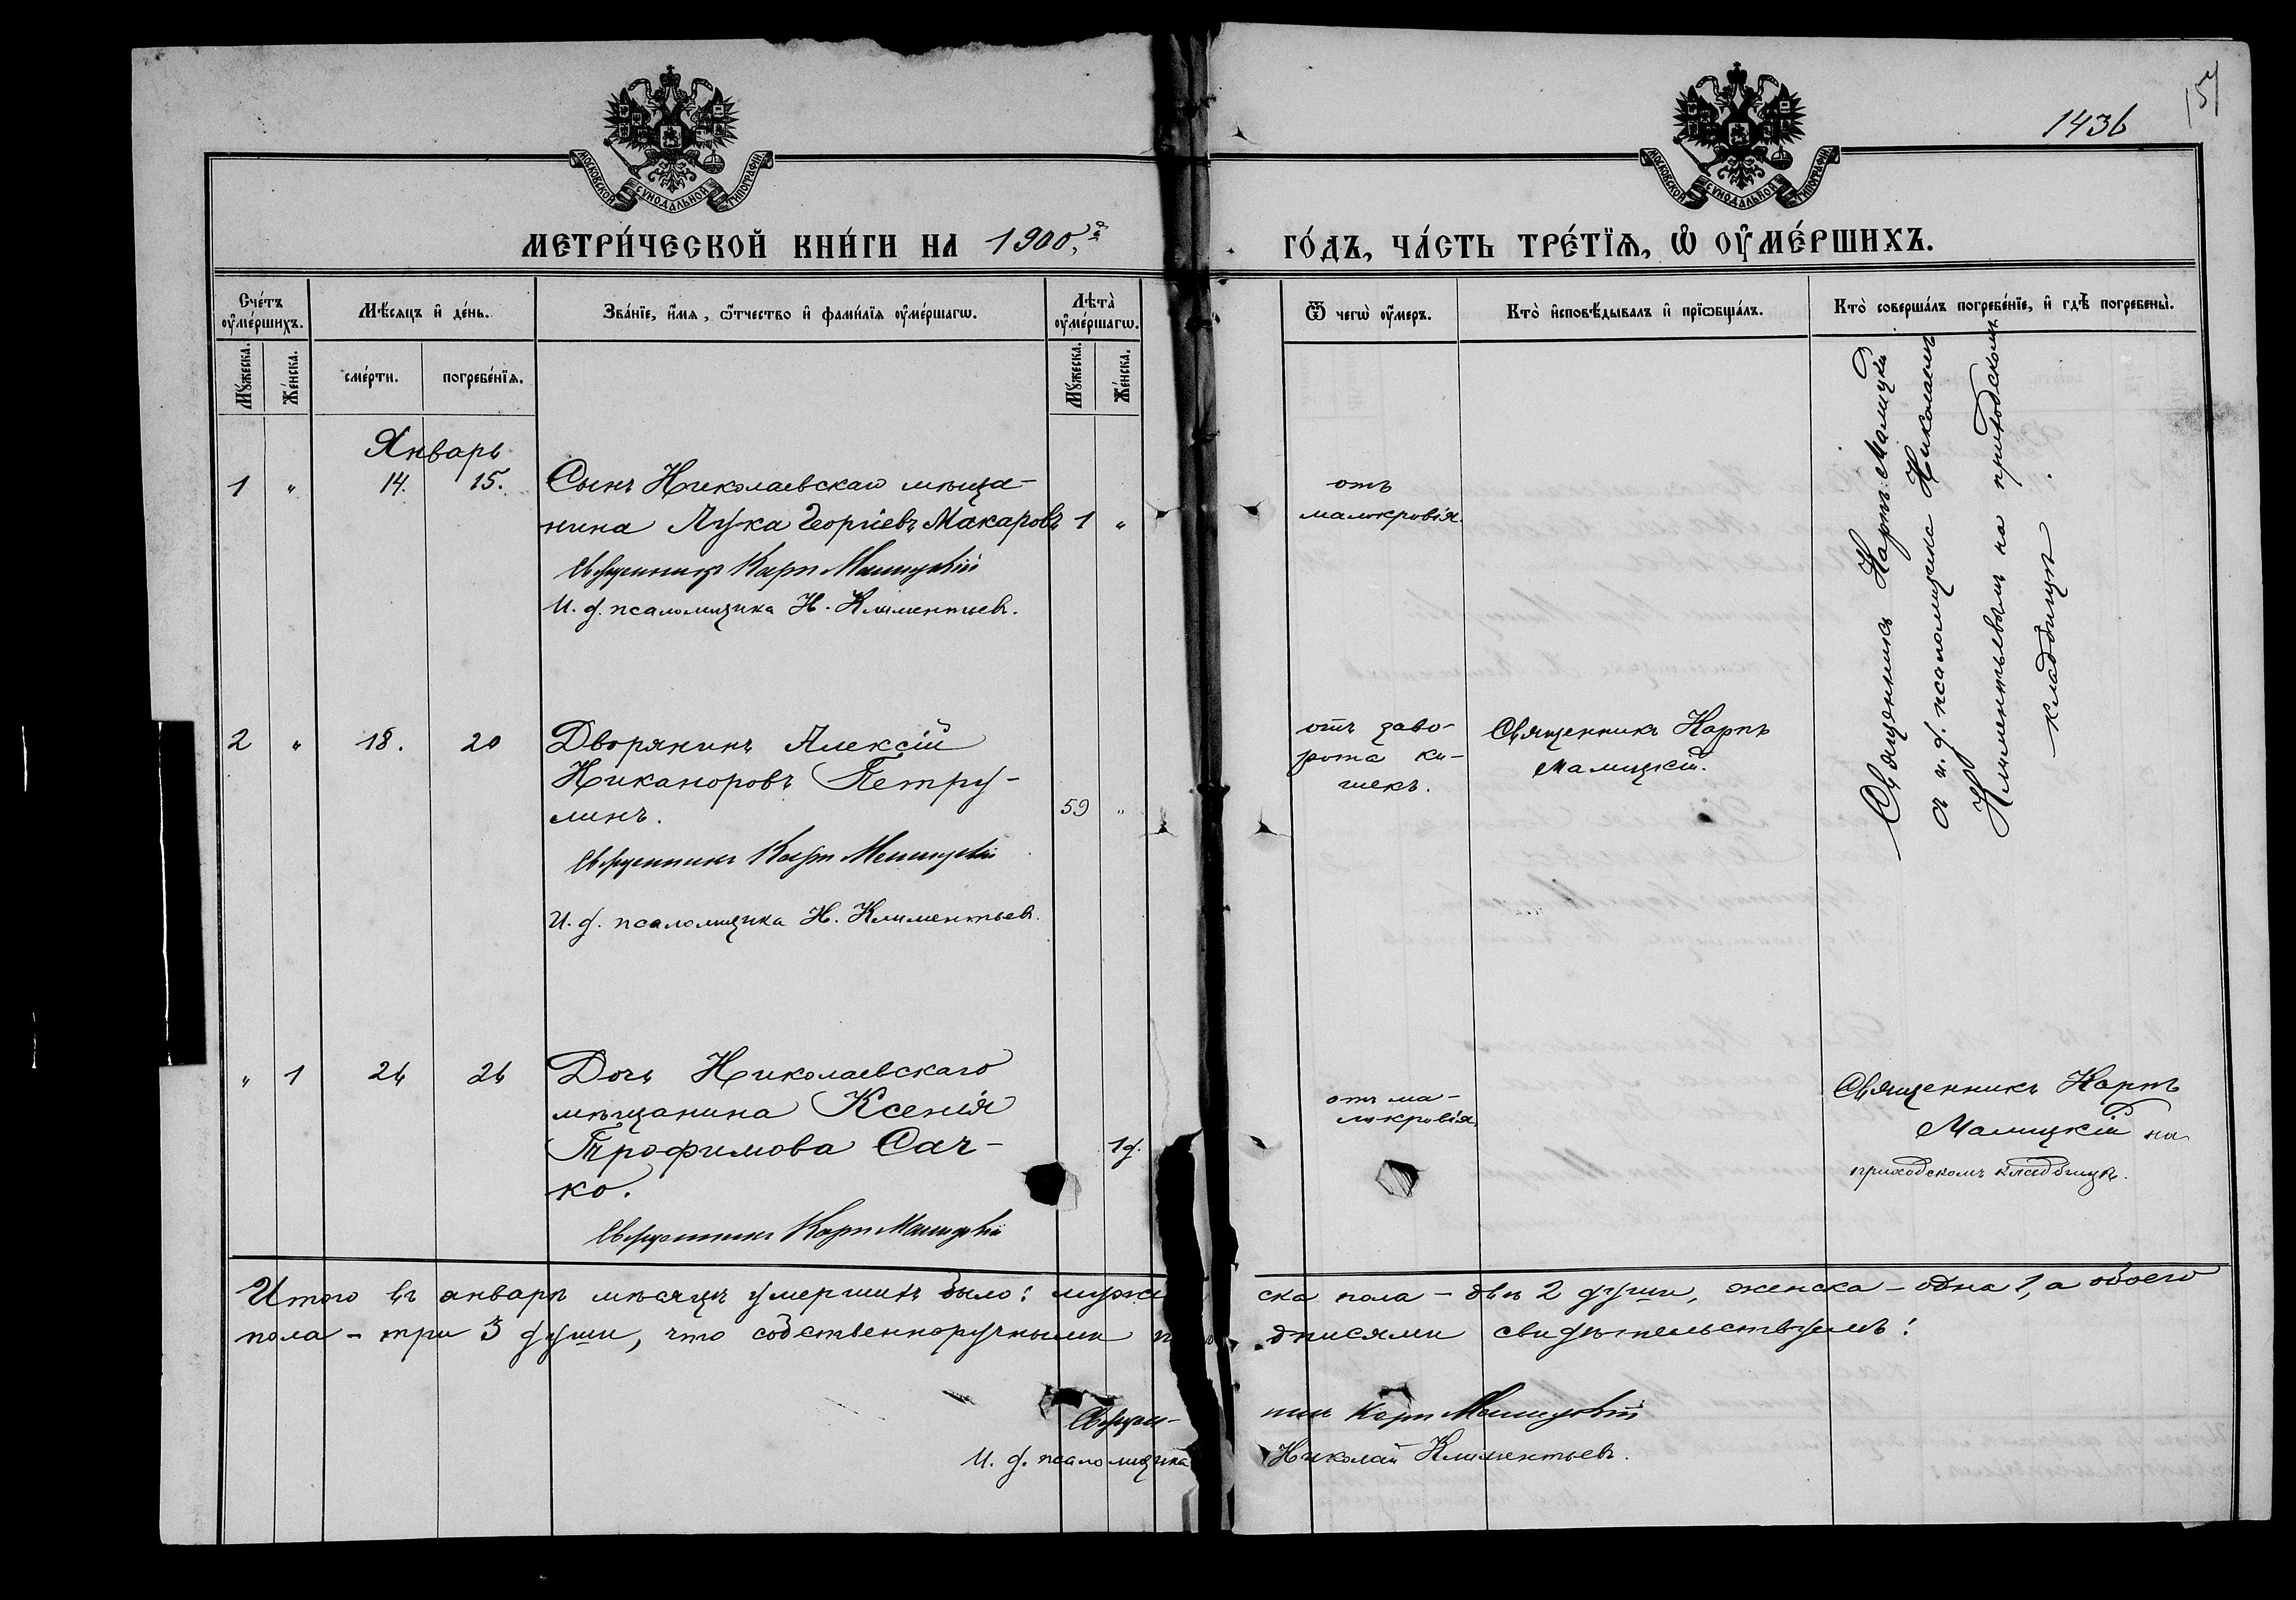 1436
МОСКОВСКОЙ СѴНОДАЛЬНОЙ ТИПОГРАФІИ.
МОСКОВСКОЙ СѴНОДАЛЬНОЙ ТИПОГРАФІИ.
МЕТРИ́ЧЕСКОЙ КНИ́ГИ НА 1900.й
ГО́ДЪ, ЧА́СТЬ ТРЕ́ТЇѦ, Ѡ ОУ҆МЕ́РШИХЪ.
Сче́тъ оу҆ме́ршихъ.
Мѣ́сяцъ и҆ де́нь.
Зва́нїе, и҆́мя, ѻ҆́тчество и҆ фами́лїя оу҆ме́ршагѡ.
Лѣта̀ оу҆ме́ршагѡ.
Ѿ чегѡ̀ оу҆́меръ.
Кто̀ и҆сповѣ́дывалъ и҆ прїѡбща́лъ.
Кто̀ соверша́лъ погребе́нїе, и҆ гдѣ̀ погребены̀.
Мꙋ́жеска.
Же́нска.
сме́рти.
погребе́нїя.
Мꙋ́жеска.
Же́нска.
Январь
1 " 14. 15. Сынъ Николаевскаго мѣща-
нина Лука Георгіевъ Макаровъ 1 "
Священникъ Карпъ Малицкій
И. д. псаломщика Н. Климентьевъ.
отъ
малокровія.
Священникъ Карпъ Малицкій
съ и. д. псаломщика Николаемъ
Климентьевымъ на приходскомъ
кладбищѣ.
2 " 18. 20 Дворянинъ Алексій
Никаноровъ Петру-
линъ. 59 "
Священникъ Карпъ Малицкій
И. д. псаломщика Н. Климентьевъ.
отъ заво-
рота ки-
шекъ.
Священникъ Карпъ
Малицкій.
" 1 24 26 Дочь Николаевскаго
мѣщанина Ксенія
Трофимова Сач-
ко. 1д.
Священникъ Карпъ Малицкій
отъ ма-
локровія.
Священникъ Карпъ
Малицкій на
приходскомъ кладбищѣ.
Итого въ январѣ мѣсяцѣ умершихъ было: муже ска пола – двѣ 2 души, женска – одна 1, а обоего
пола – три 3 души, что собственноручными по дписями свидѣтельствуемъ:
Священ- никъ Карпъ Малицкій
И. д. псаломщика Николай Климентьевъ.